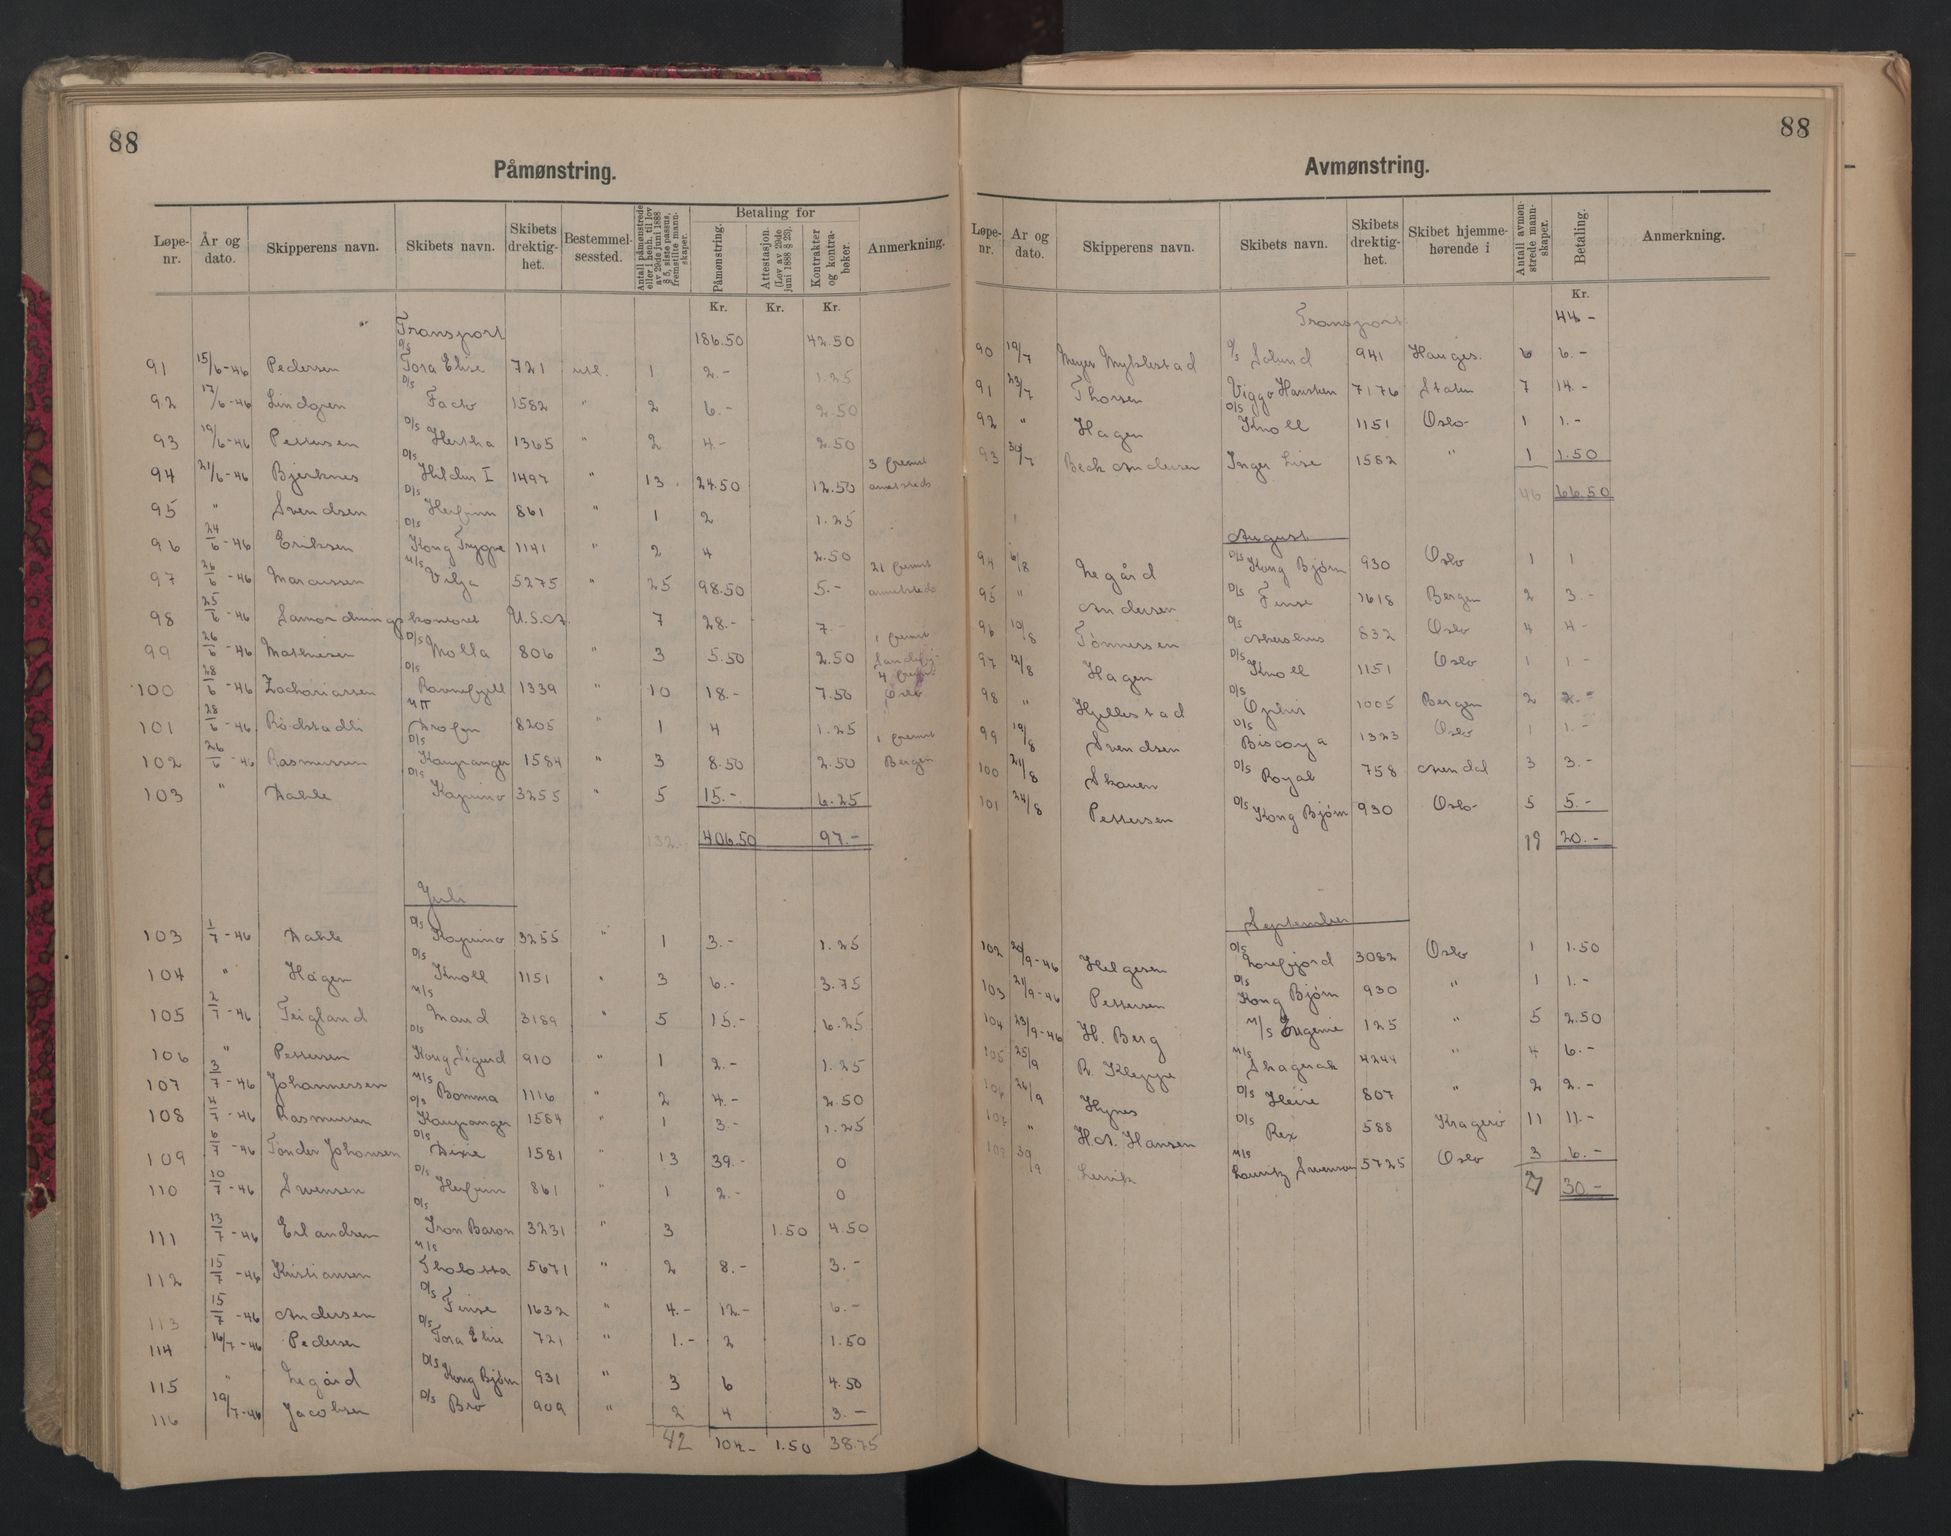 88
Påmønstring.
Løpe-nr. År og dato. Skipperens navn. Skibets navn. Skibets drektig-het. Bestemmel-sessted. Antall påmønstrede eller i henh. til lov av 29de juni 1888 § 5, siste passus, fremstilte mann-skaper. Betaling for Påmønstring. Attestasjon. (Lov av 29de juni 1888 § 23). Kontrakter og kontra-bøker. Anmerkning.
Kr. Kr. Kr.
" Transport 186.50 42.50
91 15/6-46 Pedersen D/S Tora Elise 721 utl. 1 2.- 1.25
92 17/6-46 Lindgren D/S Facto 1582 " 2 6.- 2.50
93 19/6-46 Pettersen D/S Hertha 1365 " 2 4.- 2.50
94 21/6-46 Bjerknes D/S Hildur I 1497 " 13 24.50 12.50 3 fremst annetsteds
95 " Svendsen D/S Herfinn 861 " 1 2 1.25
96 24/6-46 Eriksen D/S Kong Trygve 1141 " 2 4 2.50
97 26/6-46 Marcussen M/S Vilja 5275 " 25 98.50 5.- 21 fremst annetsteds
98 25/6-46 Samordningskontoret U.S.A. 7 28.- 7.-
99 26/6-46 Mathiesen D/S Molla 806 " 3 5.50 2.50 1 fremst Sandefj.
100 28/6-46 Zachariassen D/S Ravnefjell 1339 " 10 18.- 7.50 4 fremst Oslo
101 28/6-46 Rødstadli M/T 8205 " 1 4 1.25
102 26/6-46 Rasmussen D/S Kaupanger 1584 " 3 8.50 2.50 1 fremst Bergen
103 " Dahle D/S Kapino 3255 " 5 15.- 6.25
132. 406.50 97.-
Juli
103 1/7-46 Dahle D/S Kapino 3255 " 1 3.- 1.25
104 " Hagen D/S Knoll 1151 " 3 6.- 3.75
105 2/7-46 Teigland M/S Maud 3189 " 5 15.- 6.25
106 " Pettersen D/S Kong Sigurd 910 " 1 2.- 1.25
107 3/7-46 Johannessen M/S Bomma 1116 " 2 4.- 2.50
108 4/7-46 Rasmussen D/S Kaupanger 1584 " 1 3.- 1.25
109 6/7-46 Tønder Johansen D/S Dixie 1581 " 13 39.- 0
110 10/7-46 Svensen D/S Herfinn 861 " 1 2.- 0
111 13/7-46 Erlandsen D/S Iron Baron 3231 " 3 1.50 4.50
112 15/7-46 Kristiansen M/S Tholotta 5671 " 2 8.- 3.-
113 15/7-46 Andersen D/S Finse 1632 " 4.- 12.- 6.-
114 16/7-46 Pedersen D/S Tora Elise 721 " 1.- 2 1.50
115 " Legård D/S Kong Bjørn 931 " 3 6 4.50
116 19/7-46 Jacobsen D/S Bro 909 " 2 4 3.-
42 104.- 1.50 38.75
88
Avmønstring.
Løpe-nr. År og dato. Skipperens navn. Skibets navn. Skibets drektig-het. Skibet hjemme-hørende i Antall avmøn-strede mann-skaper. Betaling. Anmerkning.
Kr.
Transport 44.-
90 19/7 Meyer Myklestad D/S Solund 941 Hauges. 6 6.-
91 23/7 Thorsen Viggo Hansteen 7176 Staten 7 14.-
92 " Hagen D/S Knoll 1151 Oslo 1 1.-
93 30/7 Beck Andersen Inger Lise 1582 " 1 1.50
46 66.50
August
94 6/8 Legård D/S Kong Bjørn 930 Oslo 1 1
95 " Andersen D/S Finse 1618 Bergen 2 3.-
96 10/8 Tønnessen D/S Akershus 832 Oslo 4 4.-
97 12/8 Hagen D/S Knoll 1151 Oslo 1 1.-
98 " Hjellestad D/S Ophir 1005 Bergen 2 2.-
99 19/8 Svendsen D/S Biscaya 1323 Oslo 1 1.-
100 21/8 Skauen D/S Royal 758 Arendal 3 3.-
101 24/8 Pettersen D/S Kong Bjørn 930 Oslo 5 5.-
19 20.-
September
102 20/9-46 Helgesen D/S Lorefjord 3082 Oslo 1 1.50
103 21/9-46 Pettersen D/S Kong Bjørn 930 " 1 1.-
104 23/9-46 H. Berg M/S Eugenie 125 " 5 2.50
105 25/9 R. Kleppe M/S Skagerak 4244 " 4 6.-
106 26/9 Hynes D/S Heire 807 " 2 2.-
107 " H.A. Hansen D/S Rex 588 Kragerø 11 11.-
108 30/9 Lervik M/S Lauritz Swenson 5725 Oslo 3 6.-
27 30.-